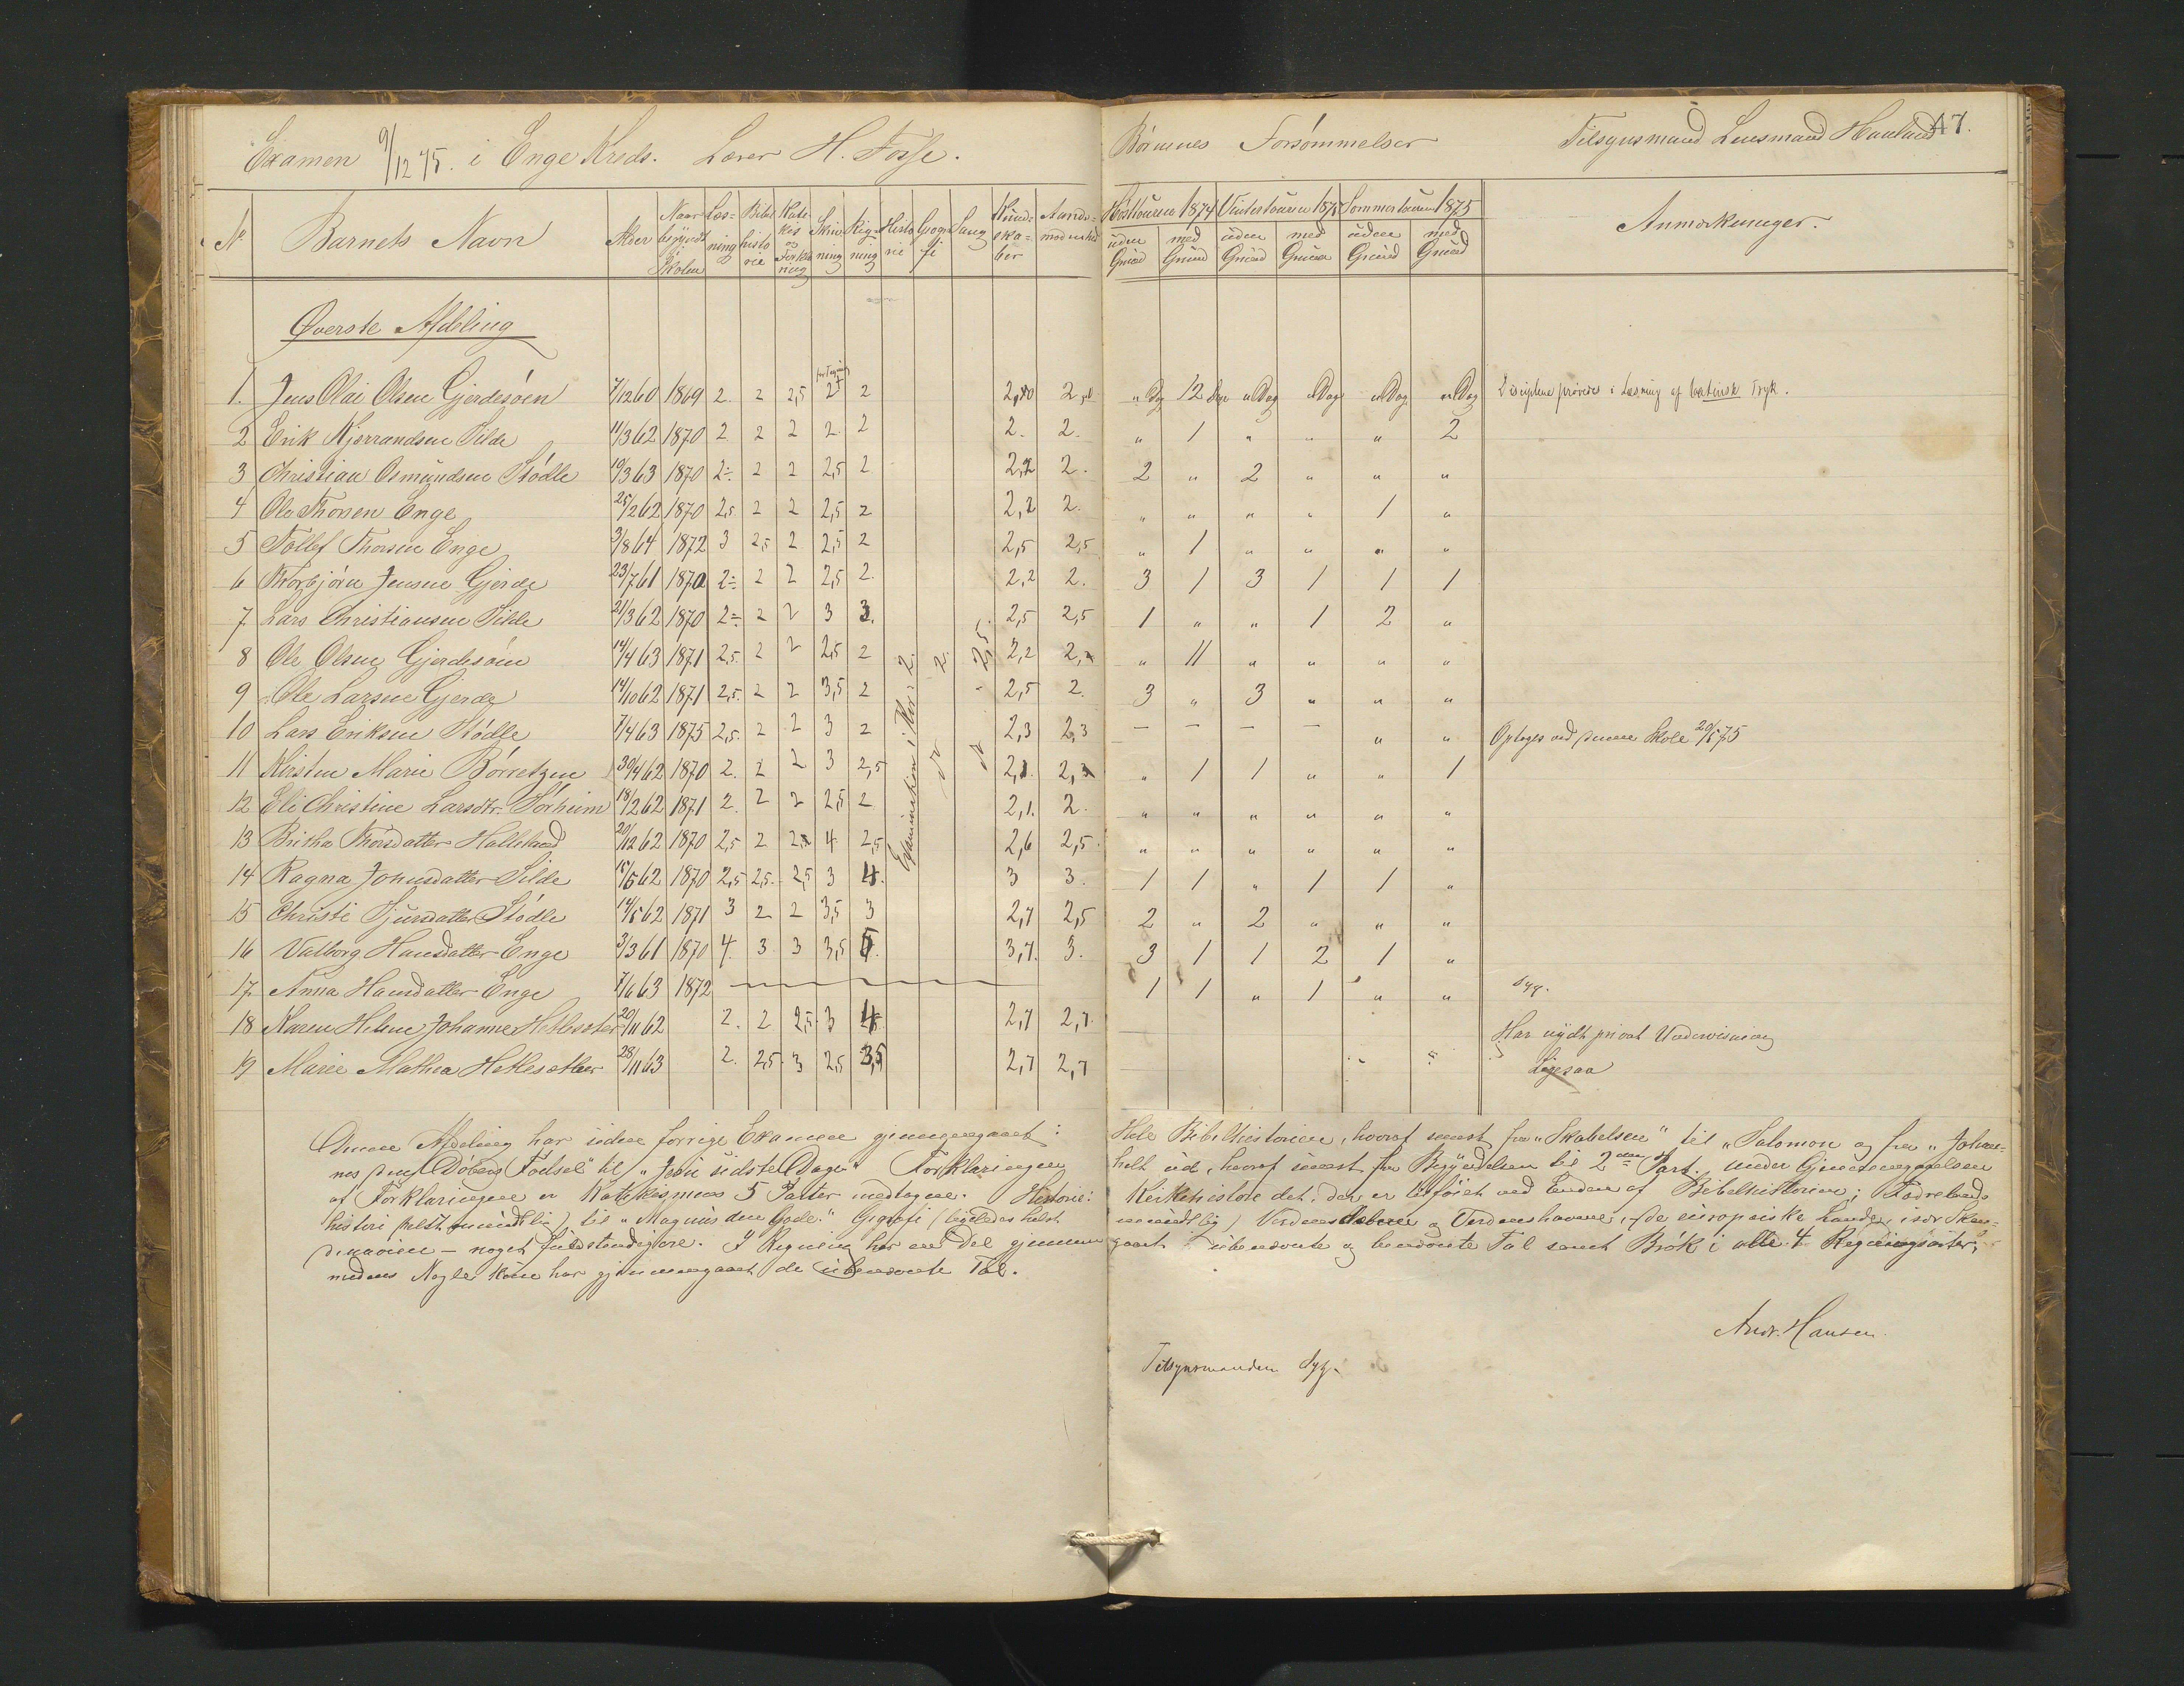 Examen 9/12 75. i Enge Kreds. Lærer H. Fosse. Børnenes Forsømmelser Tilsynsmand Lensmand Haaland 47.
№ Barnets Navn Alder Naar begyndt Skolen Læsning Bibelhistorie Katekis og Forklaring Skrivning Regning Historie Geografi Sang Kundskaber Aandsmodenhed Høsttouren 1874 Vintertouren 1875 Sommertouren 1875 Anmærkninger.
uden Grund med Grund uden Grund med Grund uden Grund med Grund
Øverste Afdeling
1. Jens Olai Olsen Gjerdesøen 7/12 60 1869 2. 2 2,5 2 2 2,20 2 " Dg 12 Dge " Dag " Dag " Dag " Dag Disciplene prøvedes i Læsning af latinsk Tryk.
2 Erik Njerrandsen Silde 11/3 62 1870 2 2 2 2 2 2. 2. " 1 " " " 2
3 Christian Osmundsen Stødle 10/3 63 1870 2÷ 2 2 2,5 2 2,2 2. 2 " 2 " " "
4 Ole Thorsen Enge 25/2 62 1870 2,5 2 2 2,5 2 2,2 2. " " " " 1 "
5 Tollef Thorsen Enge 3/8 64 1872 3 2,5 2 2,5 2 2,5 2,5 " 1 " " " "
6 Thorbjørn Jensen Gjerde 23/7 61 1870 2÷ 2 2 2,5 2. 2,2 2. 3 1 3 1 1 1
7. Lars Christiansen Silde 21/3 62 1870 2÷ 2 2 3 3. 2,5 2,5 1 " " 1 2 "
8 Ole Olsen Gjerdesøen 14/4 63 1871 2,5. 2 2 2,5 2 2,2 2,2 " 11 " " " "
9 Ole Larsen Gjerde 14/10 62 1871 2,5. 2 2 3,5 2 2,5 2. 3 " 3 " " "
10 Lars Eriksen Stødle 7/4 63 1875 2,5. 2 2 3 2 2,3 2,3 — — — — " " Optoges ved denne Skole 20/5 75
11 Kirsten Marie Børretzen 30/4 62 1870 2. 2 2 3 2,5 2,1. 2, " 1 1 " " 1
12 Eli Christine Larsdtr. Sørheim 18/2 62 1871 2. 2 2 2,5 2 2,1. 2. " " " " " "
13 Britha Thorsdatter Halleland 20/12 62 1870 2,5 2 2,5 4 2,5 2,6 2,5. " " " " " "
14 Ragna Johnsdatter Silde 15/5 62 1870 2,5 2,5. 2,5 3 4. 3 3. 1 1 " 1 1 "
15 Christi Sjursdatter Stødle 14/5 62 1871 3 2 2 3,5 3 2,7 2,5 2 " 2 " " "
16 Valborg Hansdatter Enge 3/3 61 1870 4. 3 3 3,5 5. 3,7. 3. 3 1 1 2 1 "
17. Anna Hansdatter Enge 7/6 63 1872 1 1 " 1 " " syg.
18 Karen Helene Johanne Hetlesæter 20/11 62 2. 2 2,5 3 4. 2,7 2,7. Har nydt privat Underviisning
19 Marie Mathea Hetlesæther 28/11 63 2. 2,5 3 2,5 3,5 2,7 2,7 Ligesaa
Examination i Kor: 2. 2. 2,5.
Denne Afdeling har siden forrige Examen gjennemgaaet: Hele Bibelhistorien, hvoraf senest fra "Skabelsen" til "Salomon og fra "Johan-
nes den Døbers Fødsel" til "Jesu sidste Dage". Forklaringen helt ud, hvoraf senest fra Begyndelsen til 2den Part. Under Gjennemgaaelsen
af Forklaringen er Katekismus 5 Parter medtagne. Historie: Kirkehistorie det, der er tilføiet ved Enden af Bibelhistorien; Fædrelands
historie (helst mundtlig) til "Magnus den Gode." Geografi (ligeledes helst mundtlig) Verdensdelene og Verdenshavene, de europæiske Lande, især Skan-
dinavien — noget fuldstændigere. I Regning har en Del gjennemgaaet ubenævnte og benævnte Tal samt Brøk i alle 4 Regningsarter,
medens Nogle kun har gjennemgaaet de ubenævnte Tal.
Andr. Hansen.
Tilsynsmanden syg.